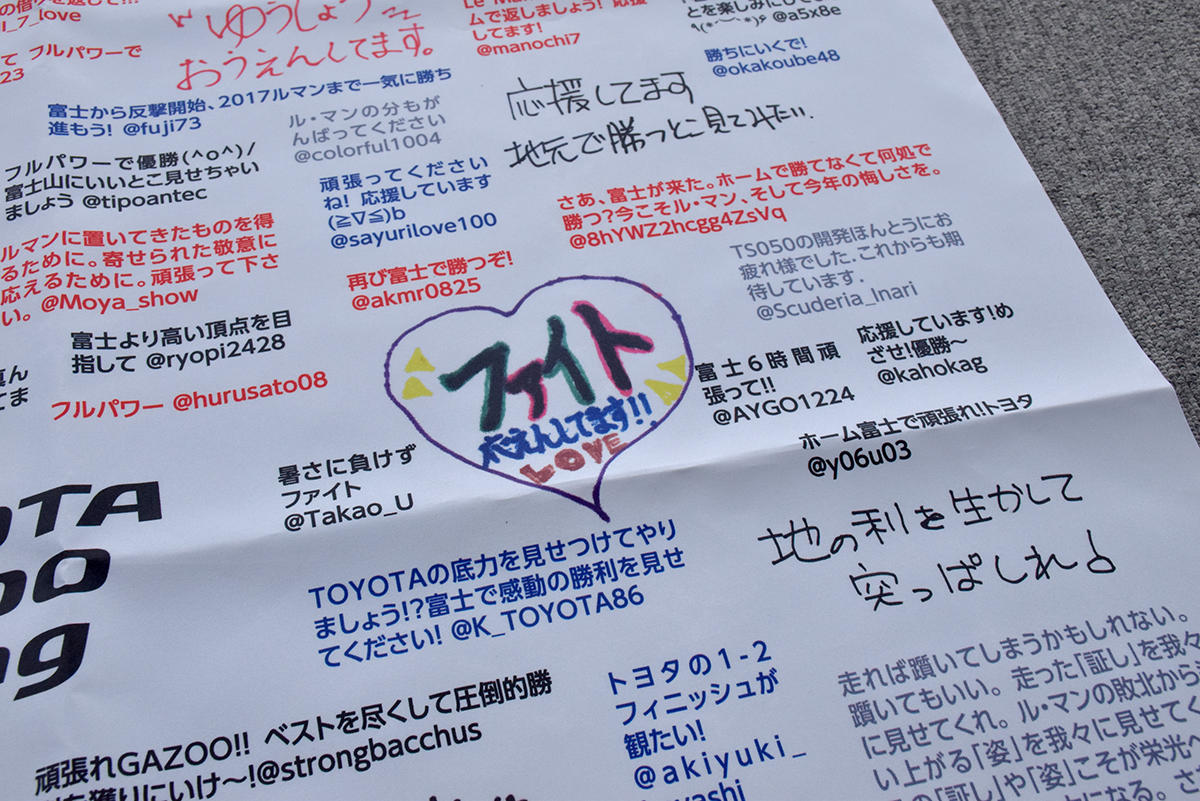 l_7_love
フルパワーで
23
ゆうしょう
おうえんしてます。
ムで返しましょう! 応援
してます!
@manochi7
とを楽しみにして
@a5x8e
勝ちにいくで!
@okakoube48
富士から反撃開始、2017ルマンまで一気に勝ち
進もう! @fuji73
ル・マンの分もが
んばってください
@colorful1004
応援してます
地元で勝つとこ見てみたい.
フルパワーで優勝(^o^)/
富士山にいいとこ見せちゃい
ましょう @tipoantec
頑張ってください
ね! 応援しています
(≧∇≦)b
@sayurilove100
さあ、富士が来た。ホームで勝てなくて何処で
勝つ?今こそル・マン、そして今年の悔しさを。
@8hYWZ2hcgg4ZsVq
ルマンに置いてきたものを得
るために。寄せられた敬意に
応えるために。頑張って下さ
い。@Moya_show
再び富士で勝つぞ!
@akmr0825
TS050の開発ほんとうにお
疲れ様でした.これからも期
待しています.
@Scuderia_Inari
富士より高い頂点を目
指して @ryopi2428
フルパワー @hurusato08
ファイト
応えんしてます!!
LOVE
富士6時間頑
張って!!
@AYGO1224
応援しています!め
ざせ!優勝〜
@kahokag
ホーム富士で頑張れ!トヨタ
@y06u03
暑さに負けず
ファイト
@Takao_U
地の利を生かして
突っぱしれ♪
TOYOTAの底力を見せつけてやり
ましょう!?富士で感動の勝利を見せ
てください! @K_TOYOTA86
頑張れGAZOO!! ベストを尽くして圧倒的勝
を獲りにいけ〜!@strongbacchus
トヨタの1-2
フィニッシュが
観たい!
@akiyuki_
走れば躓いてしまうかもしれない。
躓いてもいい。走った「証し」を我々
に見せてくれ。ル・マンの敗北から
い上がる「姿」を我々に見せてく
「証し」や「姿」こそが栄光へ